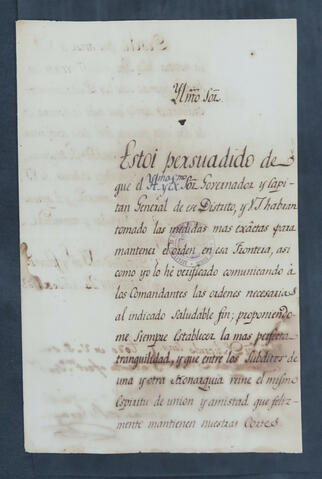 Yl͠mo Sor.
Estoi persuadido de
que el Yl͠mo y Exmo Sor. Governador y Capi-
tan General de ese Distrito, y V.I. habran
tomado las medidas mas exáctas para
mantener el orden en esa Frontera, asi
como yo lo hé verificado comunicando á
los Comandantes las ordenes necesarias
al indicado saludable fin; proponiendo-
me siempre establecer la mas perfecta
tranquiledad, y que entre los Subditos de
una y otra Monarquia reine el mismo
Espiritu de union y amistad que feliz-
mente mantienen nuestras Cortes